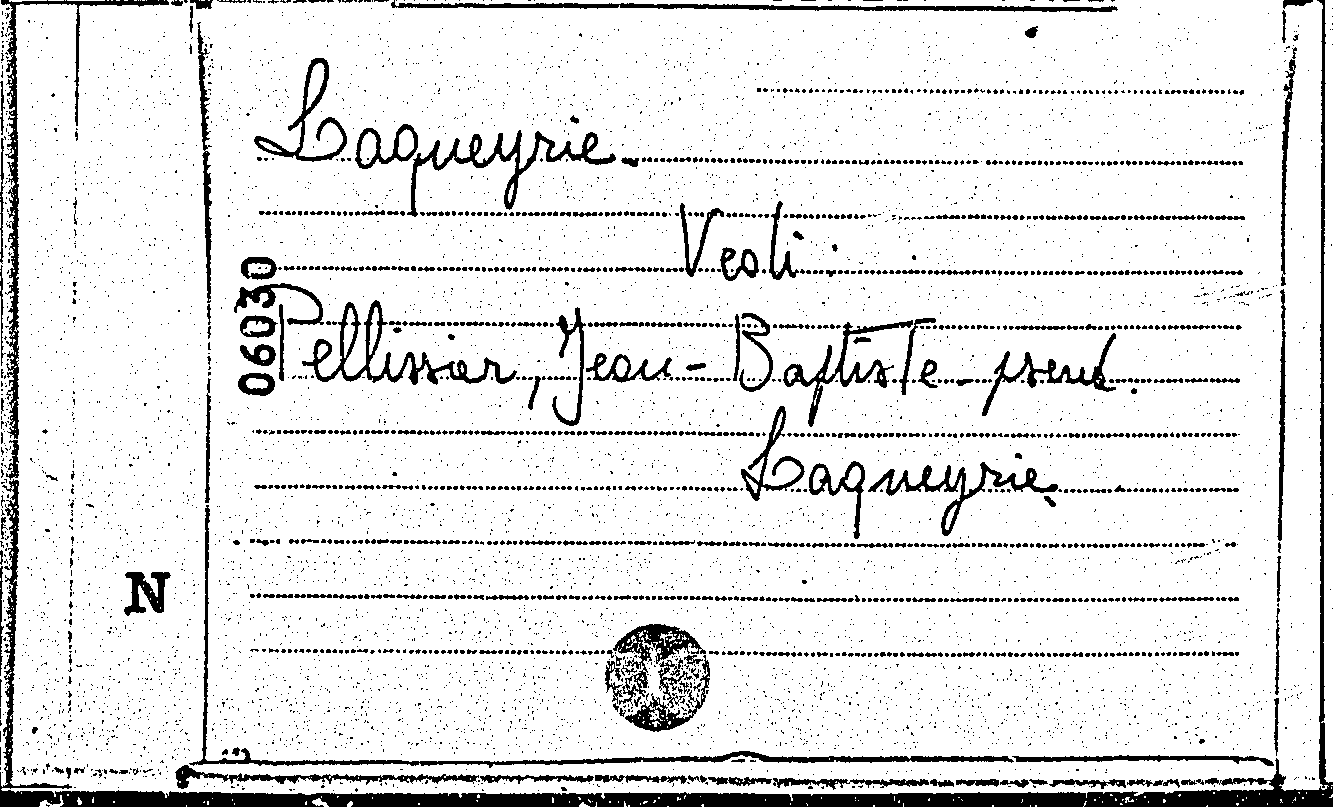 Laqueyrie.
Vedi:
06030
Pellissier, Jean-Baptiste pseud.
Laqueyrie.
N